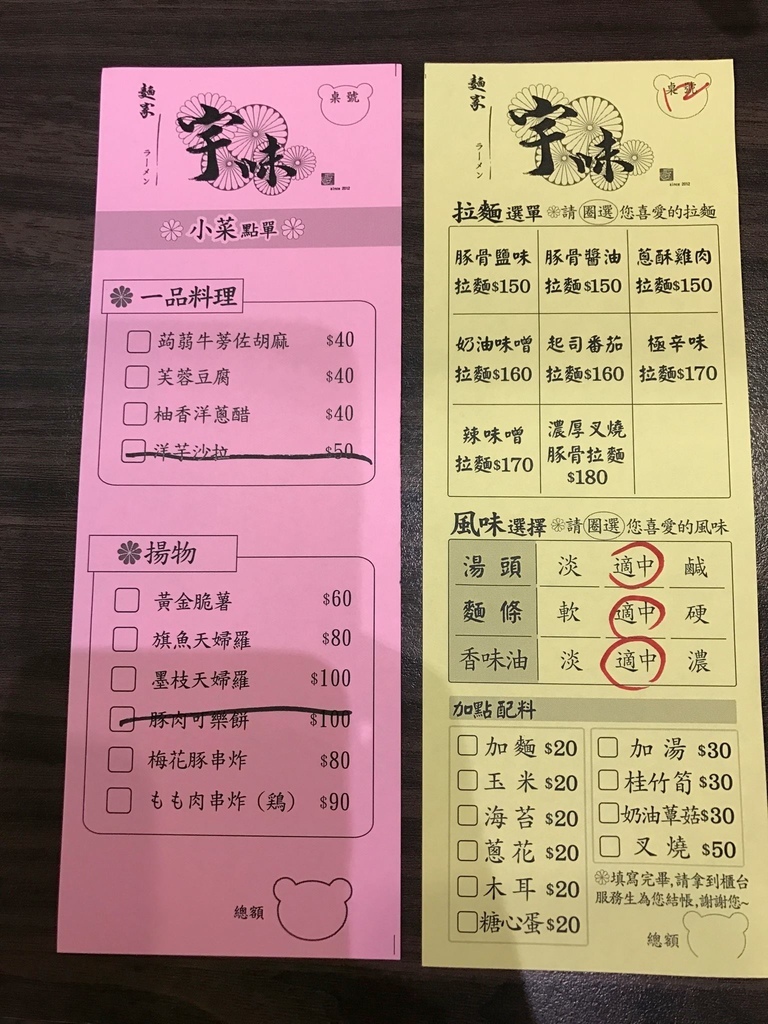 麵家
ラーメン
宇味
since 2012
桌號
小菜點單
一品料理
蒟蒻牛蒡佐胡麻 $40
芙蓉豆腐 $40
柚香洋蔥醋 $40
洋芋沙拉 $50
揚物
黃金脆薯 $60
旗魚天婦羅 $80
墨枝天婦羅 $100
豚肉可樂餅 $100
梅花豚串炸 $80
もも肉串炸（鶏） $90
總額
麵家
ラーメン
宇味
since 2012
桌號
12
拉麵選單 請圈選您喜愛的拉麵
豚骨鹽味 豚骨醬油 蔥酥雞肉
拉麵$150 拉麵$150 拉麵$150
奶油味噌 起司番茄 極辛味
拉麵$160 拉麵$160 拉麵$170
辣味噌
拉麵$170
濃厚叉燒
豚骨拉麵
$180
風味選擇 請圈選您喜愛的風味
湯頭 淡 適中 鹹
麵條 軟 適中 硬
香味油 淡 適中 濃
加點配料
加麵 $20
玉米 $20
海苔 $20
蔥花 $20
木耳 $20
糖心蛋 $20
加湯 $30
桂竹筍 $30
奶油蕈菇 $30
叉燒 $50
填寫完畢,請拿到櫃台
服務生為您結帳,謝謝您~
總額